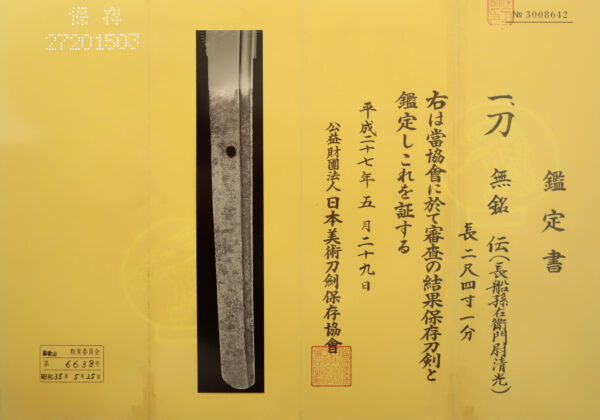 № 3008642
鑑定書
一、刀 無銘 伝(長船孫右衛門尉清光)
長二尺四寸一分
右は當協會に於て審査の結果保存刀剣と
鑑定しこれを証する
平成二十七年五月二十九日
公益財團法人 日本美術刀劍保存協會
保存
27201503
和歌山 教育委員会
第 6638 号
昭和35年5月25日